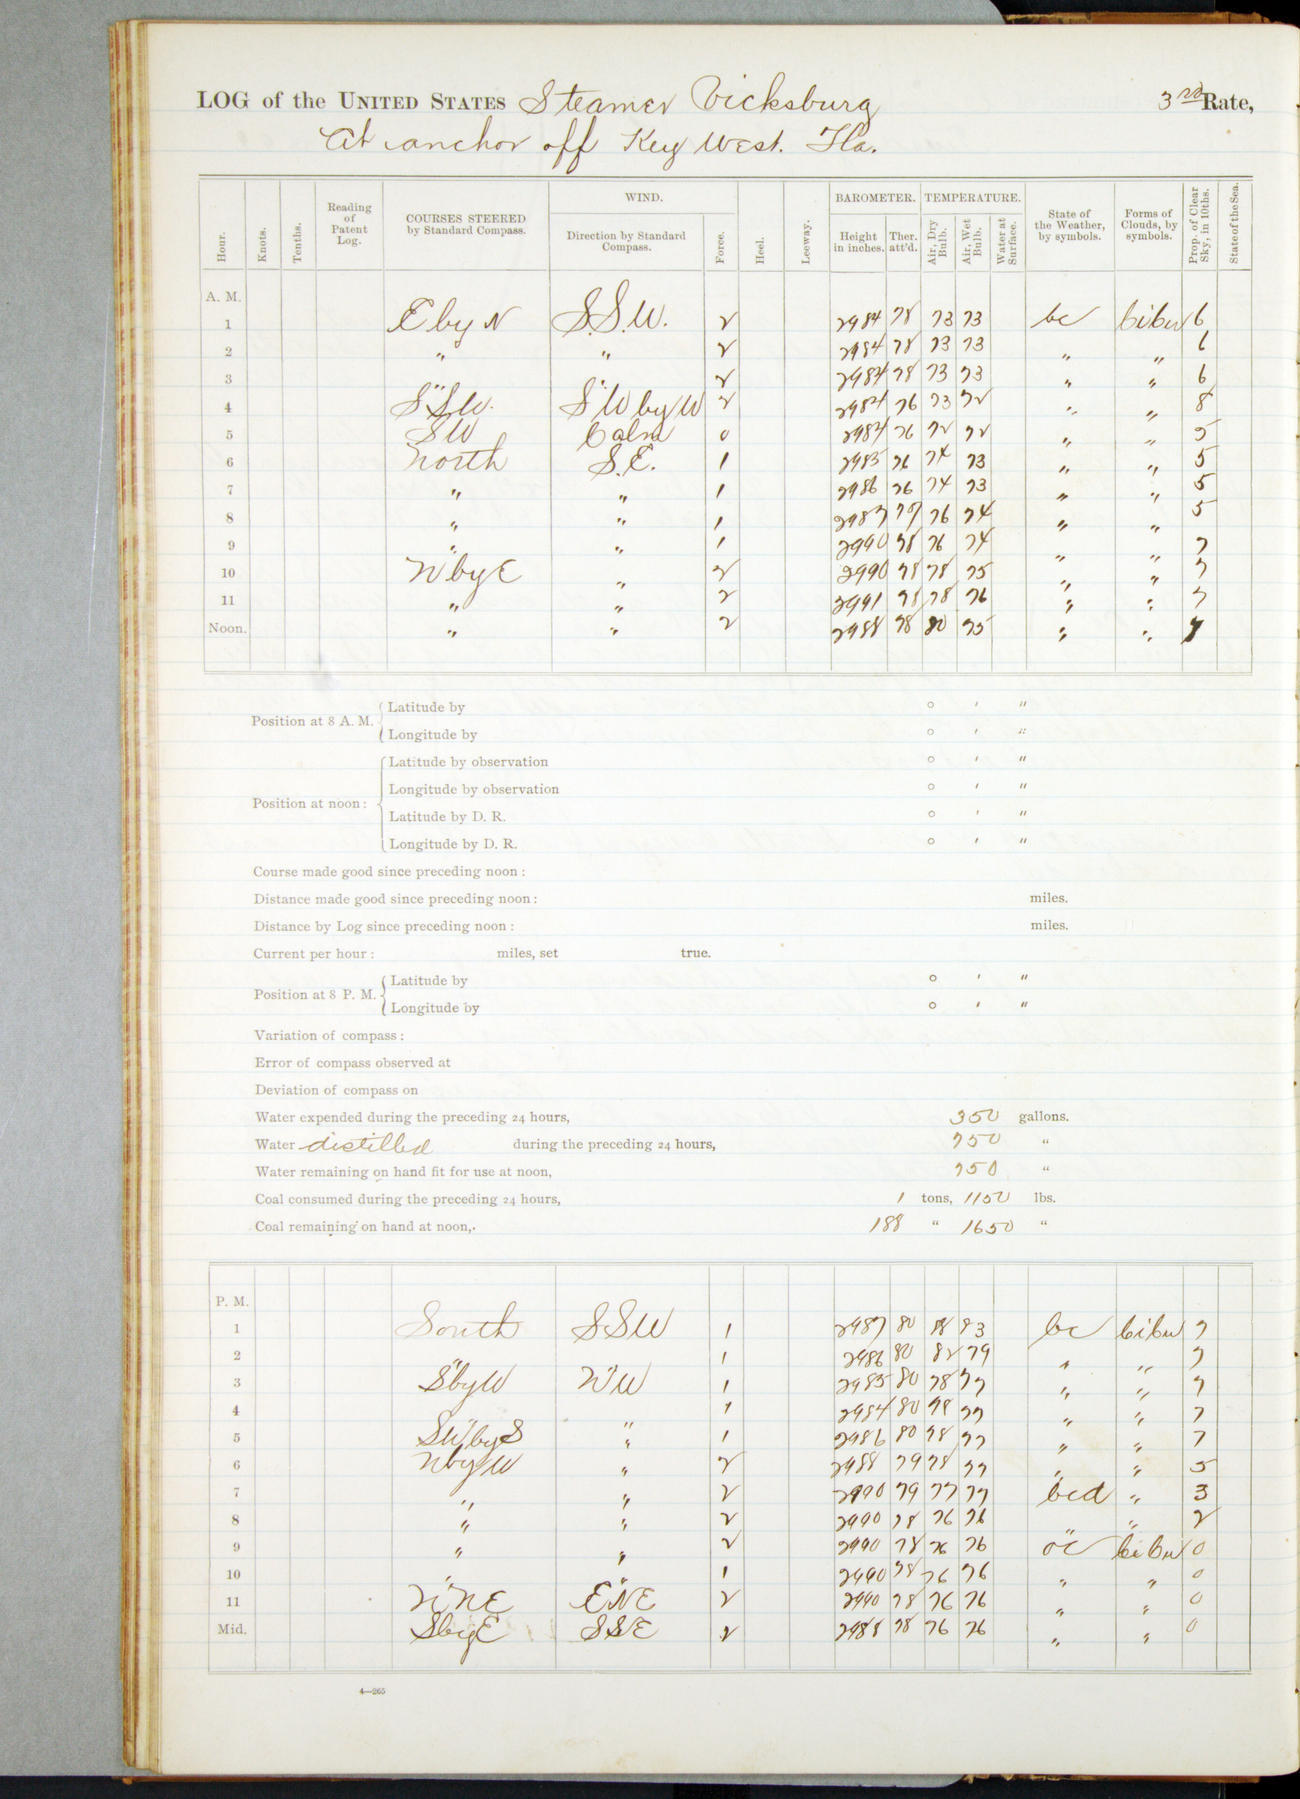 LOG of the UNITED STATES Steamer Vicksburg 3rd Rate,
At anchor off Key West. Fla.
Hour. Knots. Tenths. Reading of Patent Log. COURSES STEERED by Standard Compass. WIND. Direction by Standard Compass. Force. Heel. Leeway. BAROMETER. Height in inches. Ther. att'd. TEMPERATURE. Air, Dry Bulb. Air, Wet Bulb. Water at Surface. State of the Weather, by symbols. Forms of Clouds, by symbols. Prop. of Clear Sky, in 10ths. State of the Sea.
A. M.
1 E by N S.S.W. 2 2984 78 73 73 bc CiCu 6
2 " " 2 2984 78 73 73 " " 6
3 " " 2 2984 78 73 73 " " 6
4 SSW. SW by W 2 2984 76 73 72 " " 8
5 SW Calm 0 2984 76 72 72 " " 5
6 North S.E. 1 2985 76 74 73 " " 5
7 " " 1 2986 76 74 73 " " 5
8 " " 1 2987 76 74 " " 5
9 " " 1 2990 78 76 74 " " 7
10 N by E " 2 2990 78 78 75 " " 7
11 " " 2 2991 78 78 76 " " 7
Noon. " " 2 2988 78 80 75 " " 7
Position at 8 A. M. Latitude by ° ′ ″
Longitude by ° ′ ″
Position at noon: Latitude by observation ° ′ ″
Longitude by observation ° ′ ″
Latitude by D. R. ° ′ ″
Longitude by D. R. ° ′ ″
Course made good since preceding noon:
Distance made good since preceding noon: miles.
Distance by Log since preceding noon: miles.
Current per hour: miles, set true.
Position at 8 P. M. Latitude by ° ′ ″
Longitude by ° ′ ″
Variation of compass:
Error of compass observed at
Deviation of compass on
Water expended during the preceding 24 hours, 350 gallons.
Water distilled during the preceding 24 hours, 750 "
Water remaining on hand fit for use at noon, 750 "
Coal consumed during the preceding 24 hours, 1 tons, 1150 lbs.
Coal remaining on hand at noon, 188 " 1650 "
P. M.
1 South SSW 1 2987 80 83 bc CiCu 7
2 " " 1 2986 80 82 79 " " 7
3 S by W WW 1 2985 80 78 77 " " 7
4 " " 1 2984 80 78 77 " " 7
5 SW by S " 1 2986 80 78 77 " " 7
6 N by W " 2 2988 79 78 77 " " 5
7 " " 2 2990 79 77 77 bcd " 3
8 " " 2 2990 78 76 76 " " 2
9 " " 2 2990 78 76 76 oc CiCu 0
10 " " 1 2990 78 76 76 " " 0
11 NNE ENE 2 2990 78 76 76 " " 0
Mid. S by E SSE 2 2988 78 76 76 " " 0
4—265